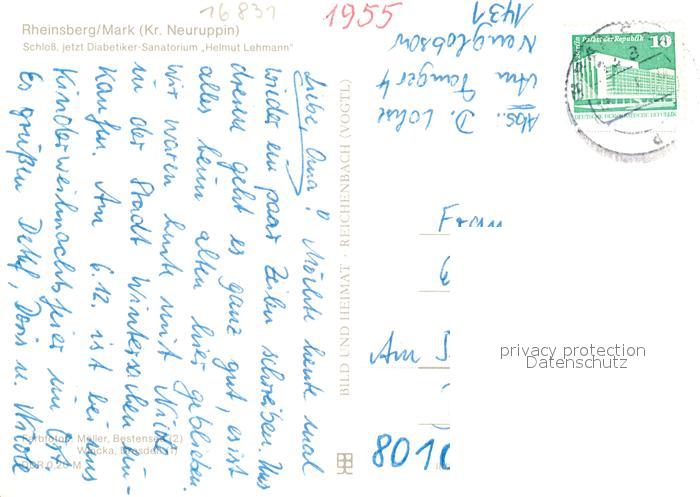 16831
1955
Rheinsberg/Mark (Kr. Neuruppin)
Schloß, jetzt Diabetiker-Sanatorium „Helmut Lehmann"
Liebe Oma! Möchte heute mal
wieder ein paar Zeilen schreiben. Uns
dreien geht es ganz gut, es ist
alles beim alten hier geblieben.
Wir waren heute mit Nicole
in der Stadt Wintersachen ein-
kaufen. Am 6.12. ist bei uns
Kinderweihnachtsfeier im Ort.
Es grüßen Detlef, Doris u. Nicole
Farbfotos: Müller, Bestensee (2)
Dresden (1)
DDR 0,20 M
BILD UND HEIMAT · REICHENBACH (VOGTL)
Abs.: D. Lohse
Am Tanger 4
Neuglobsow
1431
Berlin Palast der Republik
10
DEUTSCHE DEMOKRATISCHE REPUBLIK
Frau
Am
8010
privacy protection
Datenschutz